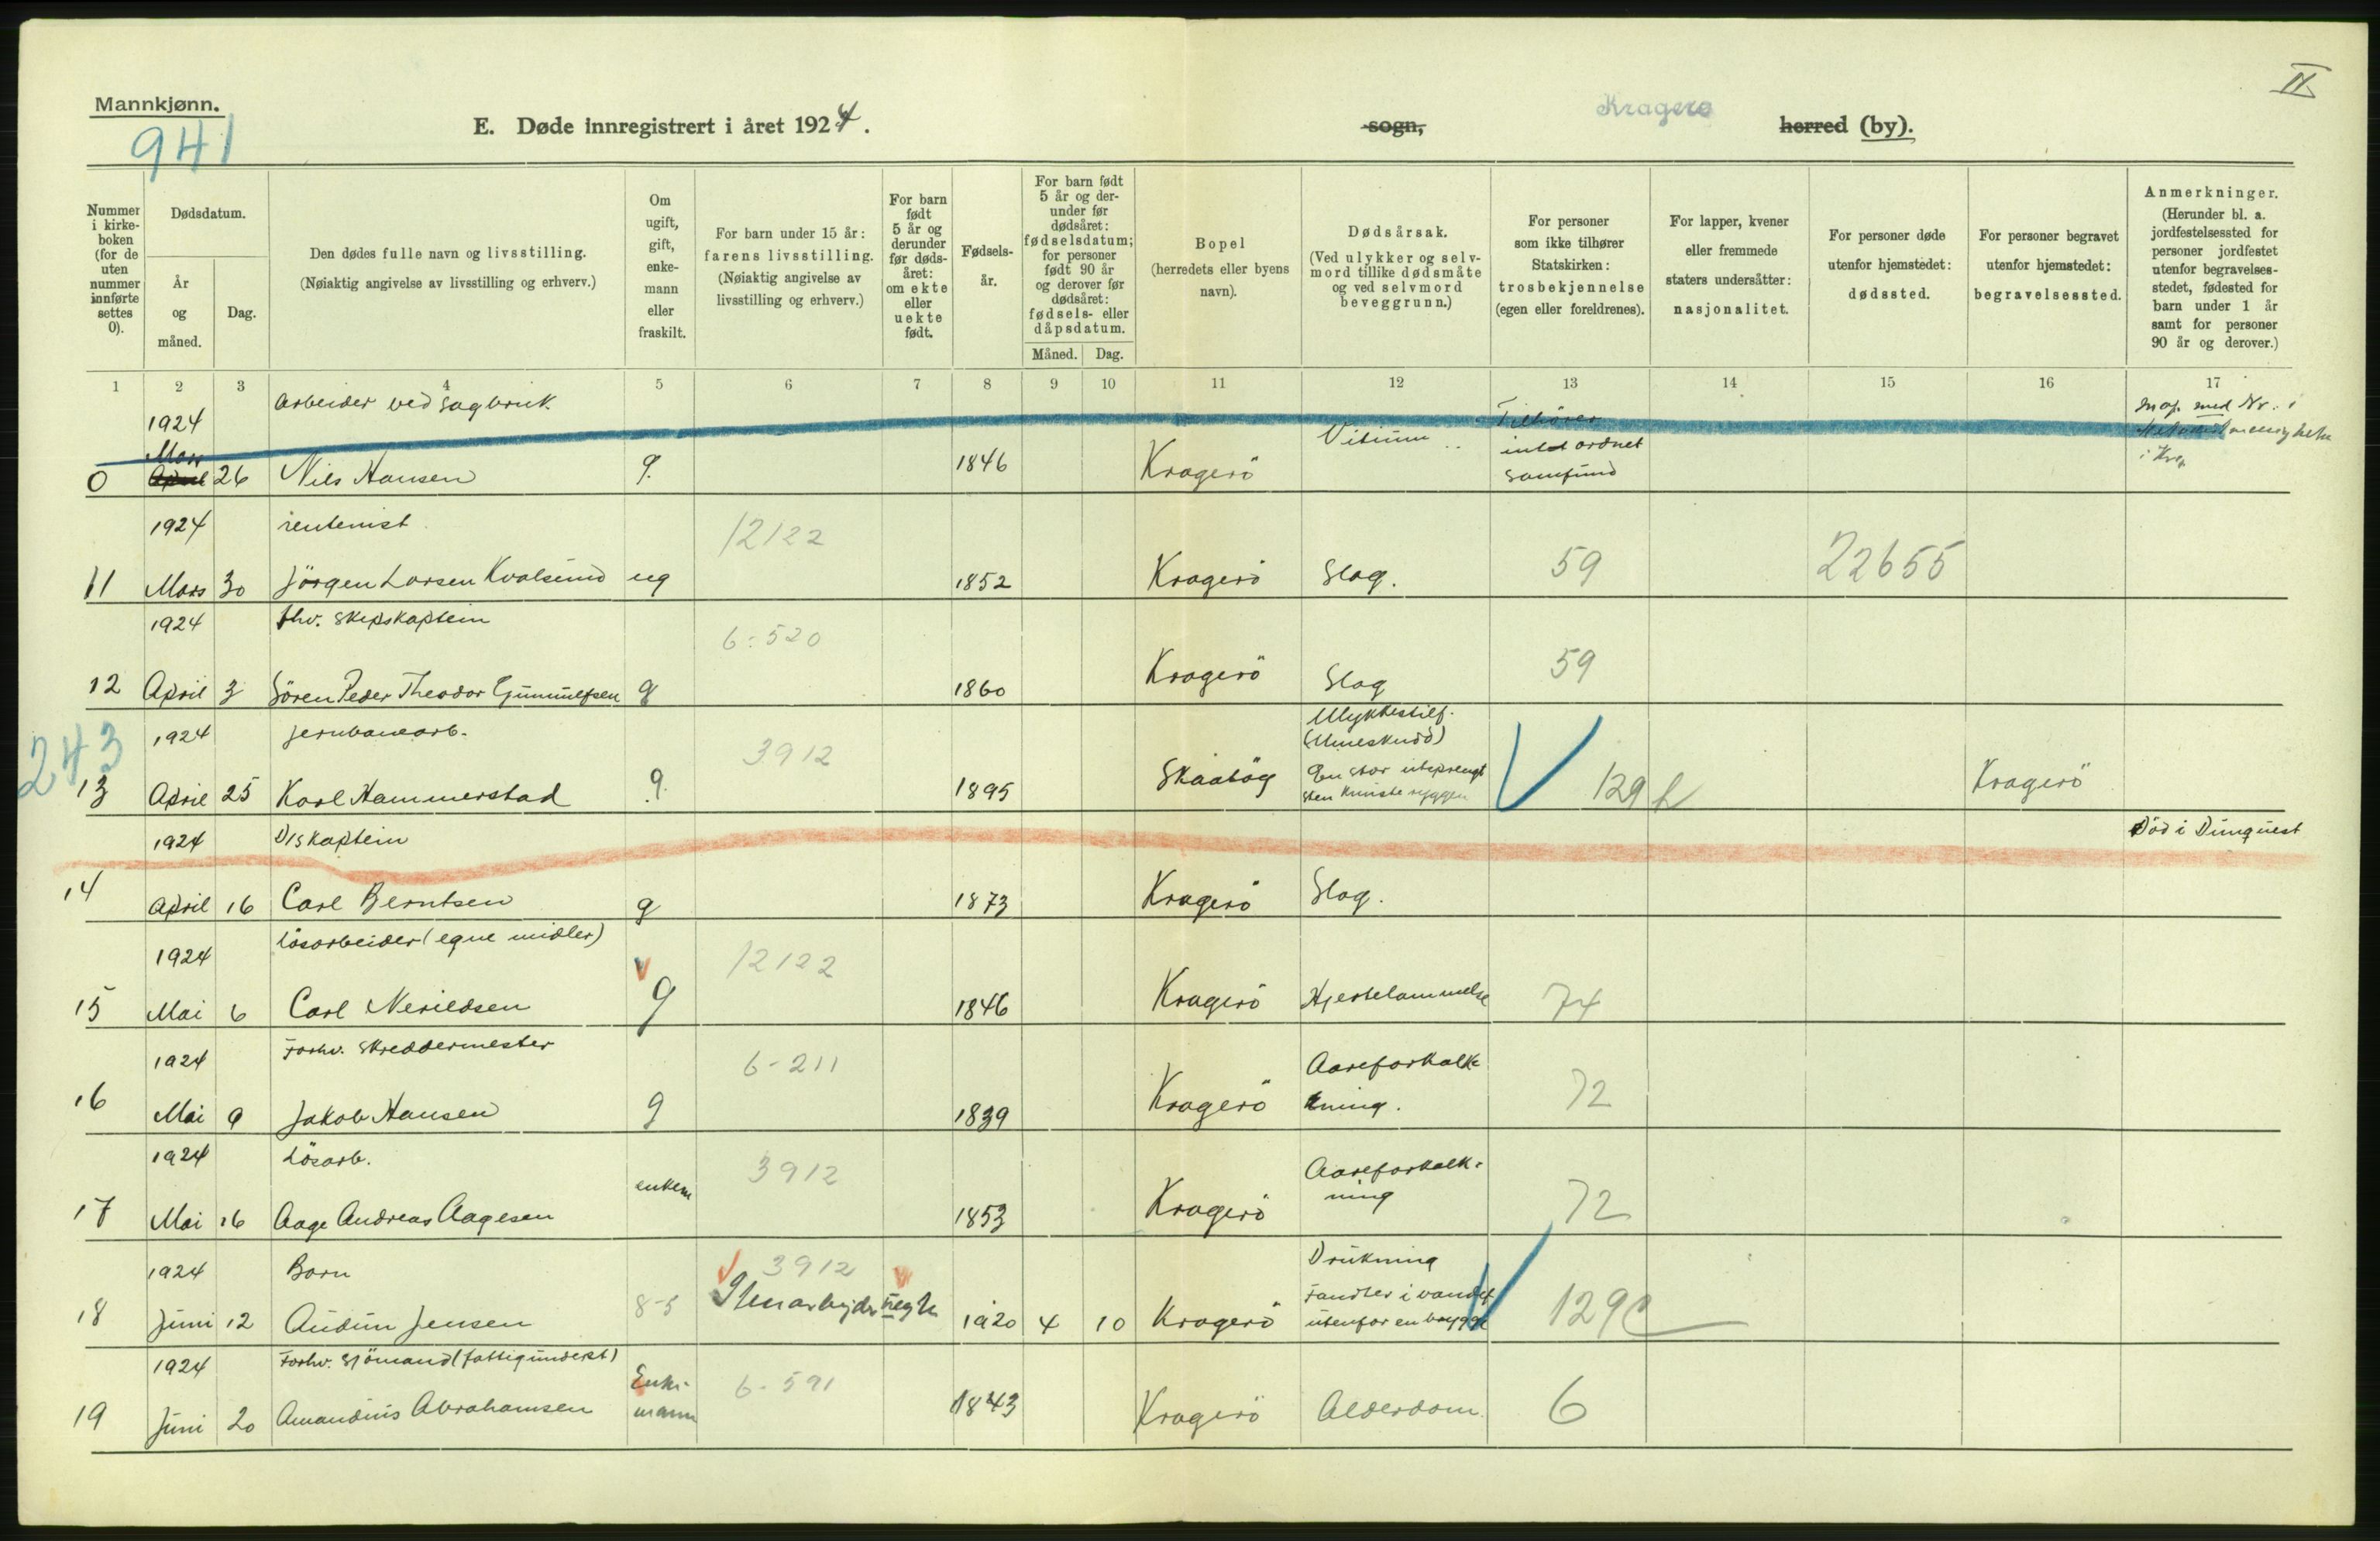 II
Mannkjønn.
941
E. Døde innregistrert i året 1924.
sogn,
Kragerø
herred (by).
Nummer i kirke-boken (for de uten nummer innførte settes 0).
Dødsdatum.
År og måned.
Dag.
Den dødes fulle navn og livsstilling.
(Nøiaktig angivelse av livsstilling og erhverv.)
Om ugift, gift, enke-mann eller fraskilt.
For barn under 15 år: farens livsstilling. (Nøiaktig angivelse av livsstilling og erhverv.)
For barn født 5 år og derunder før døds-året: om ekte eller uekte født.
Fødsels-år.
For barn født 5 år og der-under før dødsåret: fødselsdatum; for personer født 90 år og derover før dødsåret: fødsels- eller dåpsdatum.
Måned.
Dag.
Bopel (herredets eller byens navn).
Dødsårsak. (Ved ulykker og selv-mord tillike dødsmåte og ved selvmord beveggrunn.)
For personer som ikke tilhører Statskirken: trosbekjennelse (egen eller foreldrenes).
For lapper, kvener eller fremmede staters undersåtter: nasjonalitet.
For personer døde utenfor hjemstedet: dødssted.
For personer begravet utenfor hjemstedet: begravelsessted.
Anmerkninger. (Herunder bl. a. jordfestelsessted for personer jordfestet utenfor begravelses-stedet, fødested for barn under 1 år samt for personer 90 år og derover.)
1 2 3 4 5 6 7 8 9 10 11 12 13 14 15 16 17
1924 arbeider ved sagbruk Tilhører med Nr. i
Mars Vitium intet ordnet
0 April 26 Nils Hansen g. 1846 Kragerö samfund
1924 rentenist 12122
11 Mars 30 Jörgen Larsen Kvalsund ug 1852 Kragerö Slag. 59 22655
1924 fhv. skipskaptein 6-520
12 April 3 Sören Peder Theodor Gunnulfsen g 1860 Kragerö Slag 59
243
1924 jernbanearb. 3912 Ulykkestilf. (Mineskudd)
13 April 25 Karl Hammerstad g. 1895 Skaatöy En stor utsprengt sten knuste ryggen 129 Kragerö
1924 D/skaptein Död i
14 April 16 Carl Berntsen g 1873 Kragerö Slag.
1924 Lösarbeider (egne midler) 12122
15 Mai 6 Carl g 1846 Kragerö Hjertelammelse 74
1924 Forhv. skreddermester 6-211 Aareforkalk-
16 Mai 9 Jakob Hansen g 1839 Kragerö ning. 72
1924 Lösarb. 3912 Aareforkalk-
17 Mai 16 Aage Andreas Aagesen enkem 1853 Kragerö ning 72
1924 Barn 3912 Drukning
18 Juni 12 Audun Jensen 8-5 Stenarbejder uegte 1920 4 10 Kragerö Fandtes i vandet utenfor en brygge 129C
1924 Forhv. sjömand (fattigunderst) 6-591
19 Juni 20 Amandus Abrahamsen Enke-mann 1843 Kragerö Alderdom 6